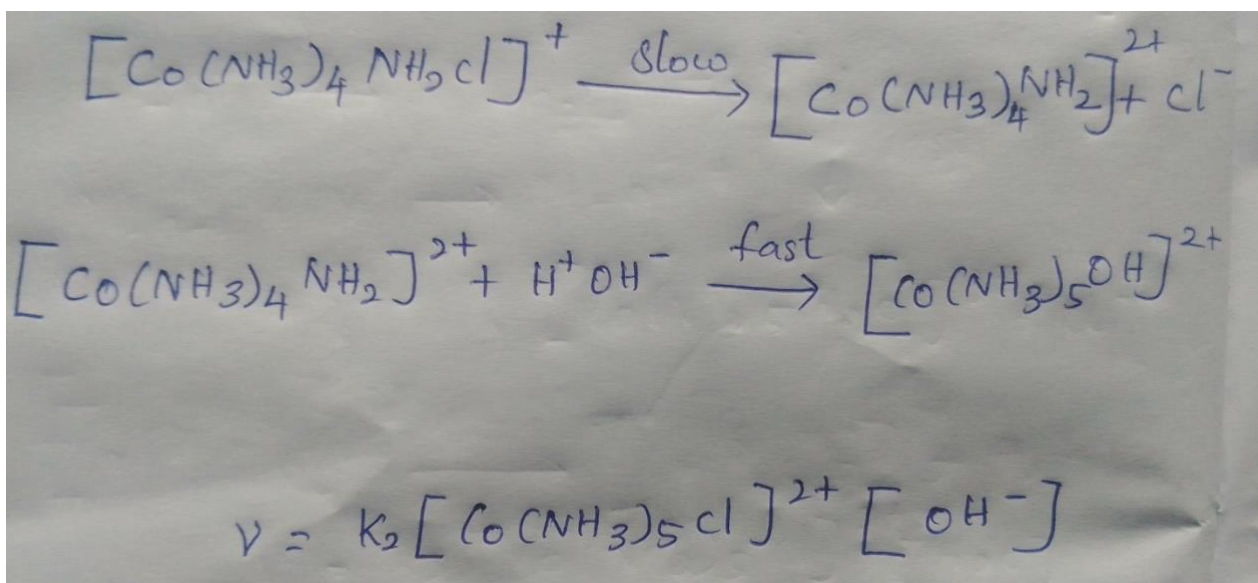 [Co(NH₃)₄ NH₂ Cl]⁺ slow → [Co(NH₃)₄NH₂]²⁺ + Cl⁻
[Co(NH₃)₄ NH₂]²⁺ + H⁺ OH⁻ fast → [Co(NH₃)₅OH]²⁺
V = K₂ [Co(NH₃)₅ Cl]²⁺ [OH⁻]